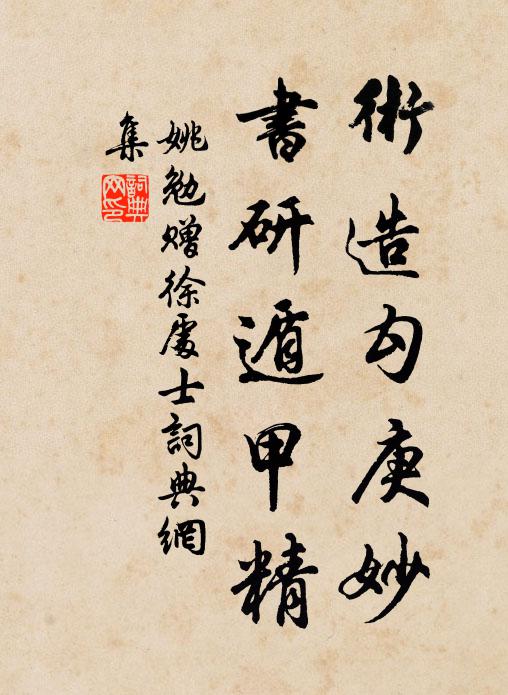 術造勾庚妙
書研遁甲精
姚勉贈徐處士詞典網
集
詞典
網印